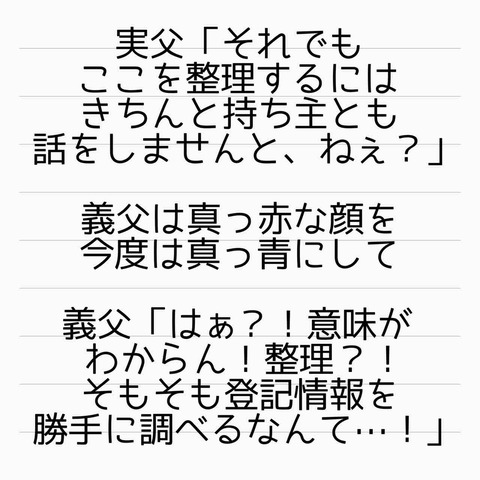 実父「それでも
ここを整理するには
きちんと持ち主とも
話をしませんと、ねぇ？」
義父は真っ赤な顔を
今度は真っ青にして
義父「はぁ？！意味が
わからん！整理？！
そもそも登記情報を
勝手に調べるなんて…！」